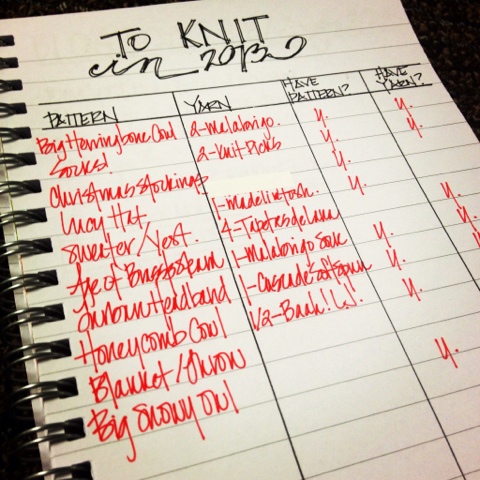 TO KNIT
in 2013
PATTERN YARN HAVE PATTERN? HAVE YARN?
Big Herringbone Cowl 2-Malabrigo. y. y.
Socks! 2-Knit Picks y. y.
Christmas Stockings y.
Lucy Hat 1-madelinetosh. y. y.
Sweater/Vest. 4- y.
Age of Brass & Steam 1-Malabrigo Sock y. y.
Turban Headband 1-Cascade y.
Honeycomb Cowl 1/2-Baah! y.
Blanket/Throw
Big Snowy Owl y.